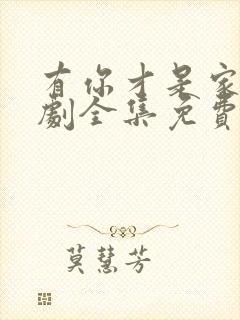 有你才是家
劇全集免費
莫慧芳